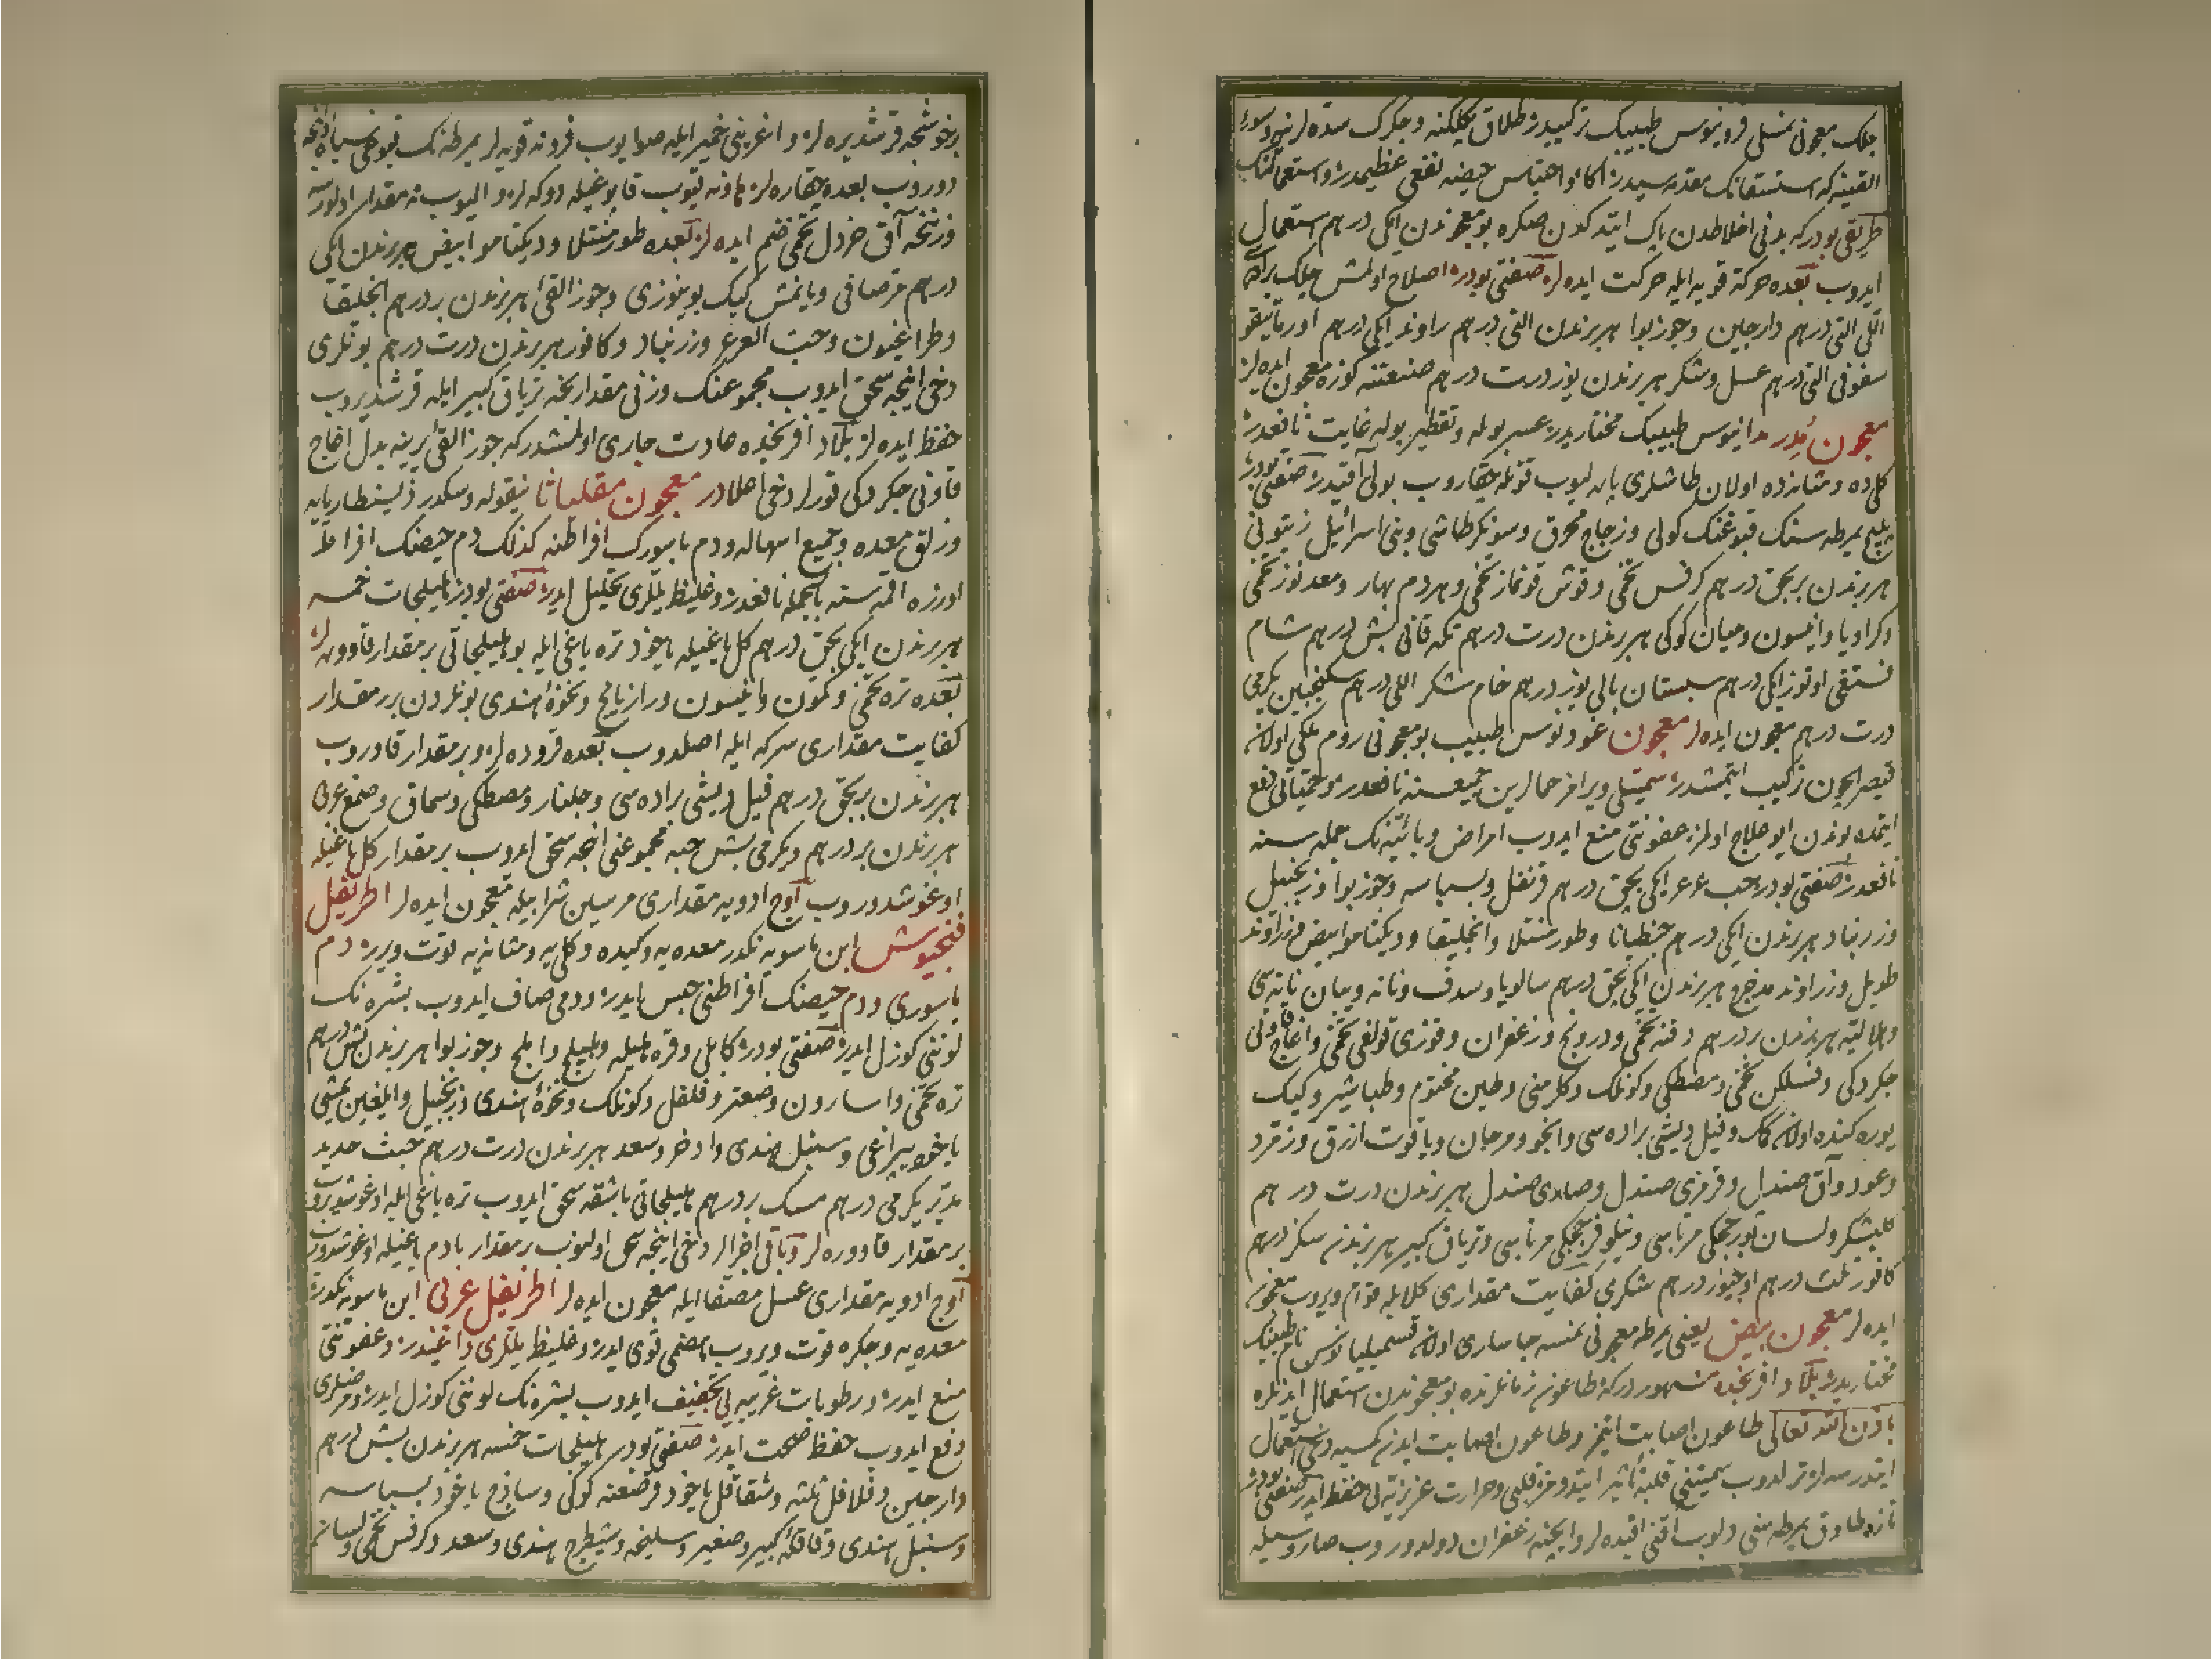 چلك معجونی نسلی فرونیوس طبیبك تركیبیدر طلاق كلكنه وجكرك سده لرینه وسوء
القینه كه استسقانك مقدمه سیدر اكا واحتباس حیضه نفعی عظیمدر واستعمالنك
طریقی بودر كه بدنی اخلاطدن پاك ایتدكدن صكره بو معجوندن ایكی درهم استعمال
ایدوب بعده حركة قویه ایله حركت ایده لر صنعتی بودر اصلاح اولمش چلك براده
اللی التی درهم دارچین وجوز بوا هر برندن التی درهم راوند ایكی درهم اورمانیقو
سفوفی التی درهم عسل وشكر هر برندن یوز درت درهم صنعتنه كوره معجون ایده لر
معجون مدر مدانیوس طبیبك مختاریدر عسر بوله وتقطیر بوله غایت نافعدر
كلیده ومثانه ده اولان طاشلری پاره لیوب قوتله چقاروب بولی آقیدر صنعتی بودر
پلیچ یمرطه سنك قبوغنك كولی وزجاج محرق وسونكر طاشی وبنی اسرائیل زیتونی
هر برندن بر بچق درهم كرفس تخمی وقوش قونماز تخمی وهردم بهار ومعدنوز تخمی
وكراویا وانیسون ومیان كوكی هر برندن درت درهم تكه قانی بش درهم شام
فستقی اوتوز ایكی درهم سبستان بالی یوز درهم خام شكر اللی درهم سكنجبین یكرمی
درت درهم معجون ایده لر معجون غودنوس طبیب بو معجونی روم ملكی اولان
قیصر ایچون تركیب ایتمشدر سمیتلی ویرامز حمالرین جمیعسنه نافعدر وحمیاتی دفع
ایتمده بوندن ایو علاج اولمز عفونتی منع ایدوب امراض وبائیه نك جمله سنه
نافعدر صنعتی بودر حب عرعر ایكی بچق درهم قرنفل وبسباسه وجوز بوا وزنجبیل
وزرنباد هر برندن ایكی درهم جنطیانا وطورمنتلا وانجلیقا ودیكتامو ابیض وزراوند
طویل وزراوند مدحرج هر برندن ایكی بچق درهم سالویا وسدف ونانه ویبان نانه سی
هر برندن بردرهم دفنه تخمی ودرونج وزعفران وقوزی قولغی تخمی واغاج قاونی
چكردكی وفسلكن تخمی ومصطكی وكونلك وكلرمنی وطین مختوم وطباشیر وكیك
یوره كنده اولان كمك وفیل دیشی براده سی وانجو ومرجان ویاقوت ازرق وزمرد
وعود وآق صندل وقرمزی صندل وصاری صندل هر برندن درت درهم
كلبشكر ولسان ثور چچكی مرباسی ونیلوفر چچكی مرباسی وتریاق كبیر هر برندن سكز درهم
كافور ثلث درهم اوچیوز درهم شكری كفایت مقداری كلابله قوام ویروب معجون
ایده لر معجون بیض یعنی یمرطه معجونی نمسه چاساری اولان قسمیلیانوس نام طبیبك
مختاریدر بلاد افرنجده مشهوردر كه طاعون زمانلرنده بو معجوندن استعمال ایدنلره
باذن الله تعالی طاعون اصابت ایتمز وطاعون اصابت ایدن كمسیه دخی استعمال
ایتدرسه لر ترلدوب سمیتنی قلبه تأثیر ایتدرمز وقلبی وحرارت غریزیه یی حفظ ایدر صنعتی بودر
تازه طاوق یمرطه سنی دلوب آقنی اقیده لر وایچنه زعفران دولدوروب صاروسیله
برخوشجه قرشدیره لر واغزینی خمیر ایله صوایوب فرونه قویه لر یمرطه نك قبوغی سیاه اولنجه
دوروب بعده چقاره لر هاونه قیوب قابوغیله دوكه لر والیوب نه مقدار اولورسه
وزننجه آق خردل تخمی ضم ایده لر بعده طورمنتلا ودیكتامو ابیض هر برندن ایكی
درهم مرصافی ویانمش كیك بوینوزی وجوز القئ هر برندن بر درهم انجلیقا
وطراغیون وحب العرعر وزرنباد وكافور هر برندن درت درهم بونلری
دخی اینجه سحق ایدوب مجموعنك وزنی مقدارنجه تریاق كبیر ایله قرشدیروب
حفظ ایده لر بلاد افرنجده عادت جاری اولمشدر كه جوز القئ یرینه بدل اغاج
قاونی چكردكی قورلر دخی اعلادر معجون مقلیاثا نیقوله وسكدر ذلینطاریایه
وزلق معده وجمیع اسهاله ودم باسورك افراطنه كذلك دم حیضك افراط
اوزره اقمه سنه بالجمله نافعدر وغلیظ یللری تحلیل ایدر صنعتی بودر هلیلجات خمسه
هر برندن ایكی بچق درهم كل یاغیله یاخود تره یاغی ایله بو هلیلجاتی بر مقدار قاووره لر
بعده تره تخمی وكمون وانیسون ورازیانج ونخوهٔ هندی بونلردن برر مقدار
كفایت مقداری سركه ایله اصلدوب بعده قروده لر وبر مقدار قاوروب
هر برندن بر بچق درهم فیل دیشی براده سی وجلنار ومصطكی وسماق وصمغ عربی
هر برندن بر درهم ویكرمی بش حبه مجموعنی اینجه سحق ایدوب بر مقدار كل یاغیله
اوغوشدوروب آوچ ادویه مقداری مرسین شرابیله معجون ایده لر اطریفل
فنجیوش ابن ماسویه نكدر معده یه وكبده وكلیه ومثانه یه قوت ویرر دم
باسوری ودم حیضك افراطنی حبس ایدر ودمی صاف ایدوب بشره نك
لوننی كوزل ایدر صنعتی بودر كابلی وقره هلیله وبلیلج واملج وجوز بوا هر برندن بش درهم
تره تخمی واسارون وصعتر وفلفل وكونلك ونخوهٔ هندی وزنجبیل
یاخود یپراغی وسنبل هندی واذخر وسعد هر برندن درت درهم خبث حدید
مدبر یكرمی درهم مسك بر درهم هلیلجاتی باشقه سحق ایدوب تره یاغی ایله اوغوشدیروب
بر مقدار قاووره لر وباقی اجزالر دخی اینجه سحق اولنوب بر مقدار بادم یاغیله اوغوشدوروب
آوچ ادویه مقداری عسل مصفا ایله معجون ایده لر اطریفل عربی ابن ماسویه نكدر
معده یه وجكره قوت ویروب هضمی قوی ایدر وغلیظ یللری داغیدر وعفونتی
منع ایدر ورطوبات غریبه یی تجفیف ایدوب بشره نك لوننی كوزل ایدر ومرضلری
دفع ایدوب حفظ صحت ایدر صنعتی بودر هلیلجات خمسه هر برندن بش درهم
دارچین وفلافل ثلثه وشقاقل یاخود قرصعنه كوكی وساذج یاخود بسباسه
وسنبل هندی وقاقلهٔ كبیر وصغیر وسلیخه وشیطرج هندی وسعد وكرفس تخمی ولسان